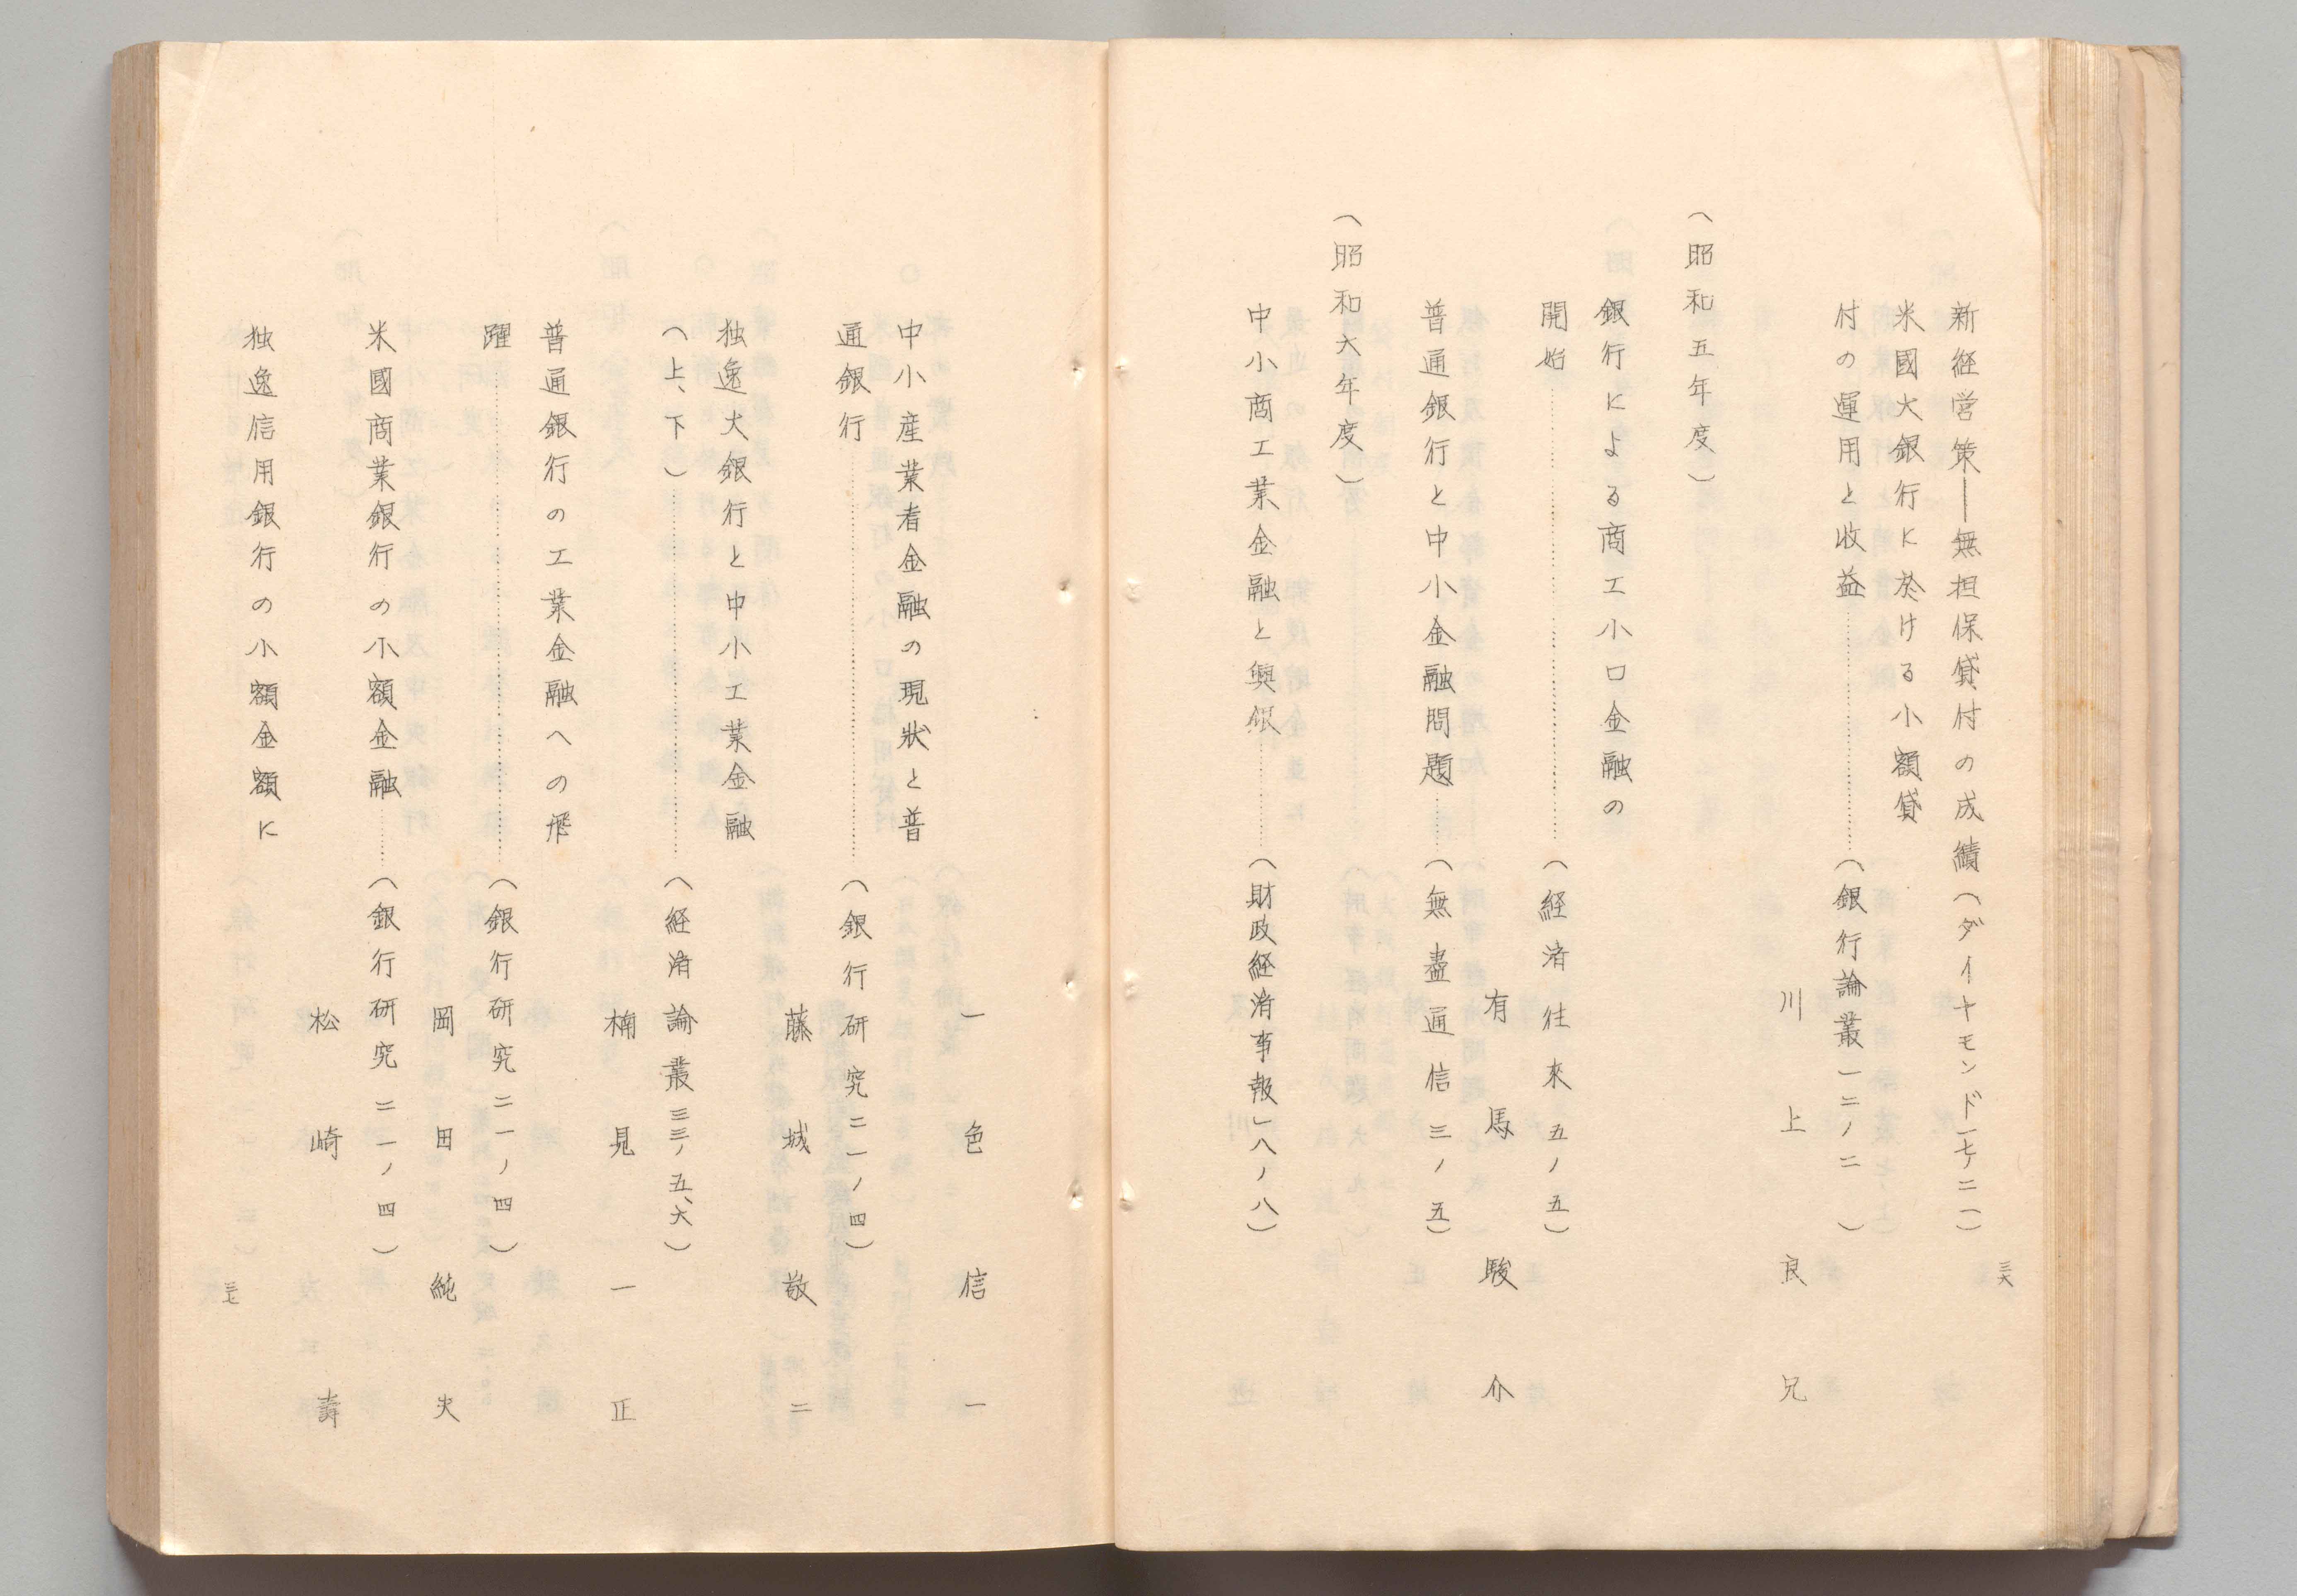 新経営策―無担保貸付の成績(ダイヤモンド一七ノ二一)
米國大銀行に於ける小額貸
付の運用と収益……(銀行論叢一二ノ二)
川上良兄
(昭和五年度)
銀行による商工小口金融の
開始……(経済往來五ノ五)
有馬駿介
普通銀行と中小金融問題……(無盡通信三ノ五)
(昭和六年度)
中小商工業金融と興銀……(財政経済事報」八ノ八)
三六
一色信一
中小産業者金融の現狀と普
通銀行……(銀行研究二一ノ四)
藤城敬二
独逸大銀行と中小工業金融
(上、下)……(経済論叢三三ノ五、六)
楠見一正
普通銀行の工業金融への飛
躍……(銀行研究二一ノ四)
岡田純夫
米國商業銀行の小額金融……(銀行研究二一ノ四)
松崎壽
独逸信用銀行の小額金額に
三七